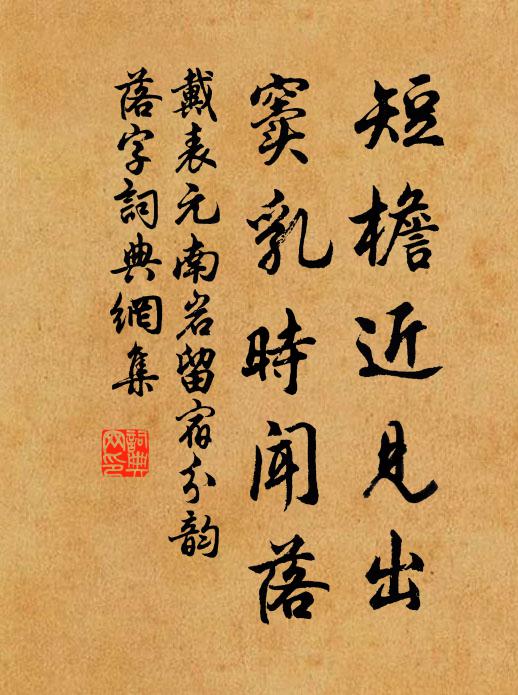 短檐近見出
窦乳時闻落
戴表元南岩留宿分韵
落字詞典網集
詞典
网印